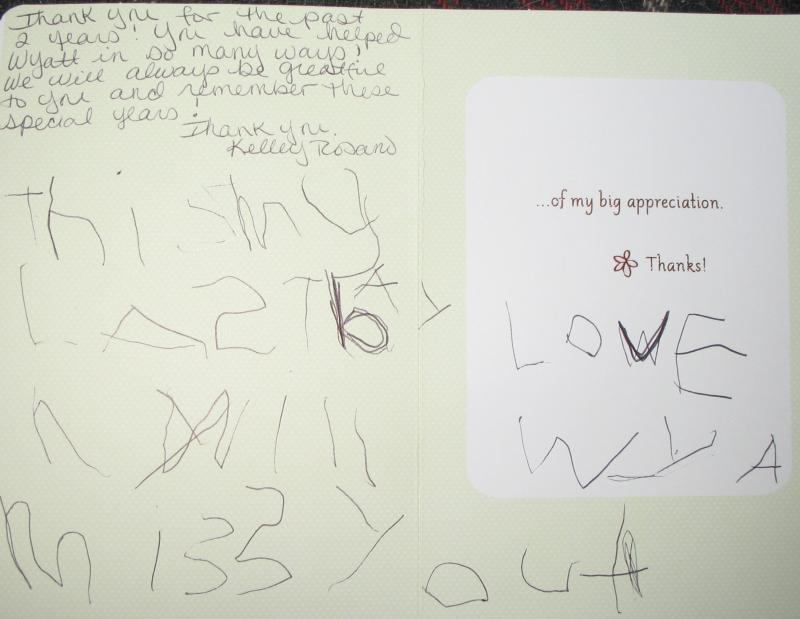 Thank you for the past
2 years! You have helped
Wyatt in so many ways!
We will always be greatful
to you and remember these
special years!
Thank you.
Kelley Rosano
This my
LAST bAY
Will
miss you
...of my big appreciation.
Thanks!
LOVE
WYA